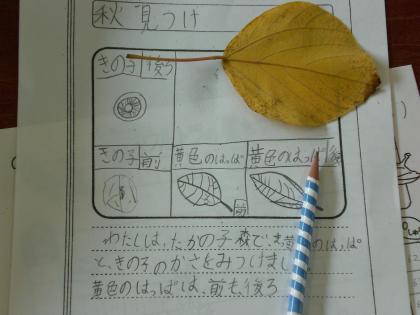 秋見つけ
きの子 後ろ
きの子 前 黄色のはっぱ 黄色のはっぱ 後
前
わたしは、たかの子森で、黄のはっぱ
と、きの子のかさをみつけまし
黄色のはっぱは、前も、後ろ